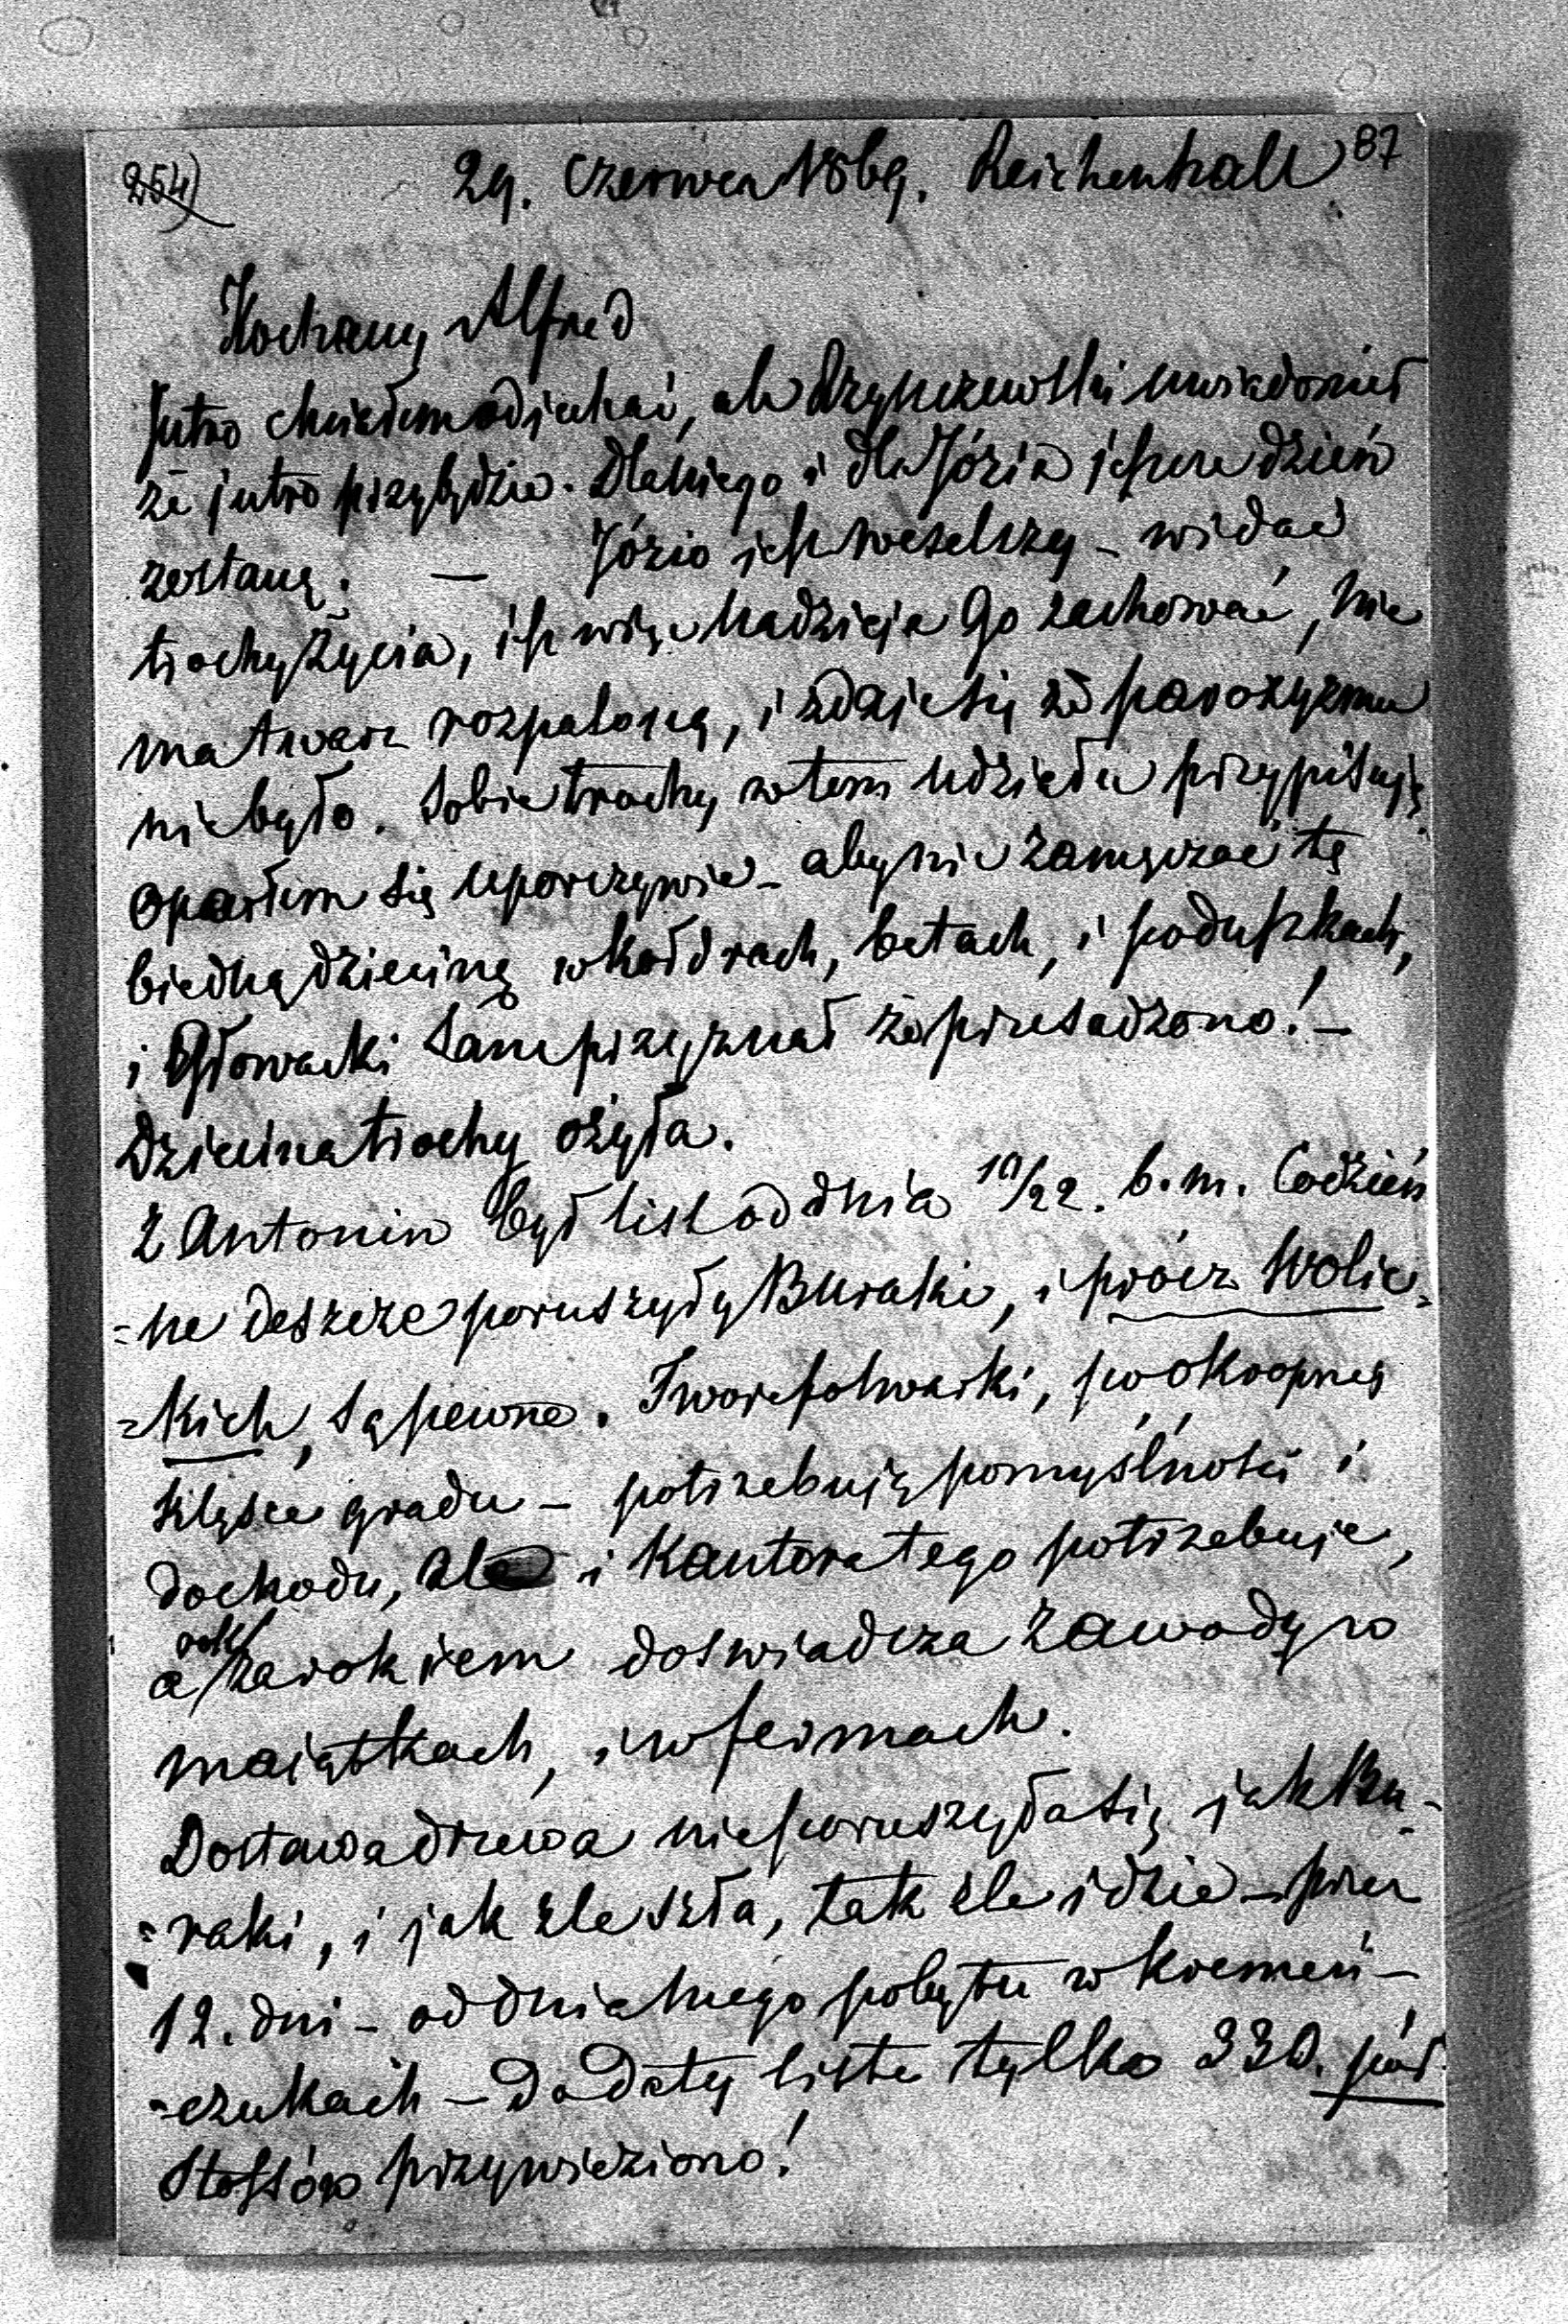 254)
29. Czerwca 1869. Reichenhall
87
Kochany Alfred
Jutro chciałem odjechać, ale uwiadomił
że jutro przybędzie. Dla niego i dla Józia jeszcze dzień
zostanę. — Józio jest weselszy – widać
trochę życia, jest więc nadzieja Go zachować, nie
ma twarz rozpaloną, i zdaje się że paroxyzmu
nie było. Sobie trochę w tem udziału przypisuję
oparłem się uporczywie – aby nie zamęczać tę
biedną dziecinę w kołdrach, betach, i poduszkach,
i Głowacki sam przyznał że przesadzono! –
Dziecina trochę ożyła.
Z Antonin był list od dnia 10/22. b. m. Codzień
=ne deszcze poruszyły Buraki, i prócz Wolic=
=kich, są pewne. Twore folwarki, po okropnej
klęsce gradu – potrzebują pomyślności i
dochodu, ale i Kantora tego potrzebuje,
a rok za rokiem doswiadcza zawody w
maiątkach, i w fermach.
Dostawa drzewa nie poruszyła się jak Bu-
=raki, i jak źle szła, tak źle idzie – przez
12. dni – od dnia mego pobytu w Kremeń-
-czukach – do daty listu tylko 330. pół
Stossów przywieziono!